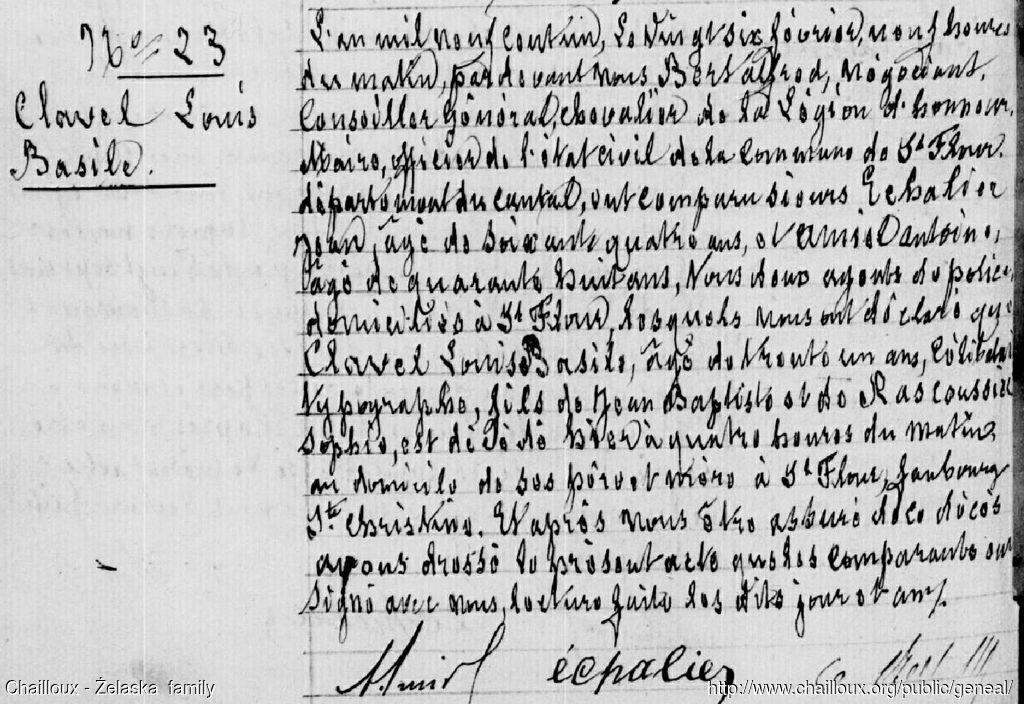 No 23
Clavel Louis
Basile.
L'an mil neuf cent un, le vingt six février, neuf heures
du matin, par devant nous Bert Alfred, négociant,
Conseiller Général, chevalier de la Légion d'honneur,
Maire, officier de l'état civil de la commune de St Flour,
département du cantal, ont comparu sieurs Echalier
Jean, âgé de soixante quatre ans, et Amiel antoine,
âgé de quarante huit ans, tous deux agents de police,
domiciliés à St Flour, lesquels nous ont déclaré que
Clavel Louis Basile, âgé de trente un ans, célibataire
typographe, fils de Jean Baptiste et de Rascoussier
Sophie, est décédé hier à quatre heures du matin
au domicile de ses père et mère à St Flour, faubourg
Ste Christine. Et après nous être assuré de ce décès
avons dressé le présent acte que les comparants ont
signé avec nous, lecture faite les dits jour et an.
Amiel échalier
Chailloux - Żelaska family
http://www.chailloux.org/public/geneal/